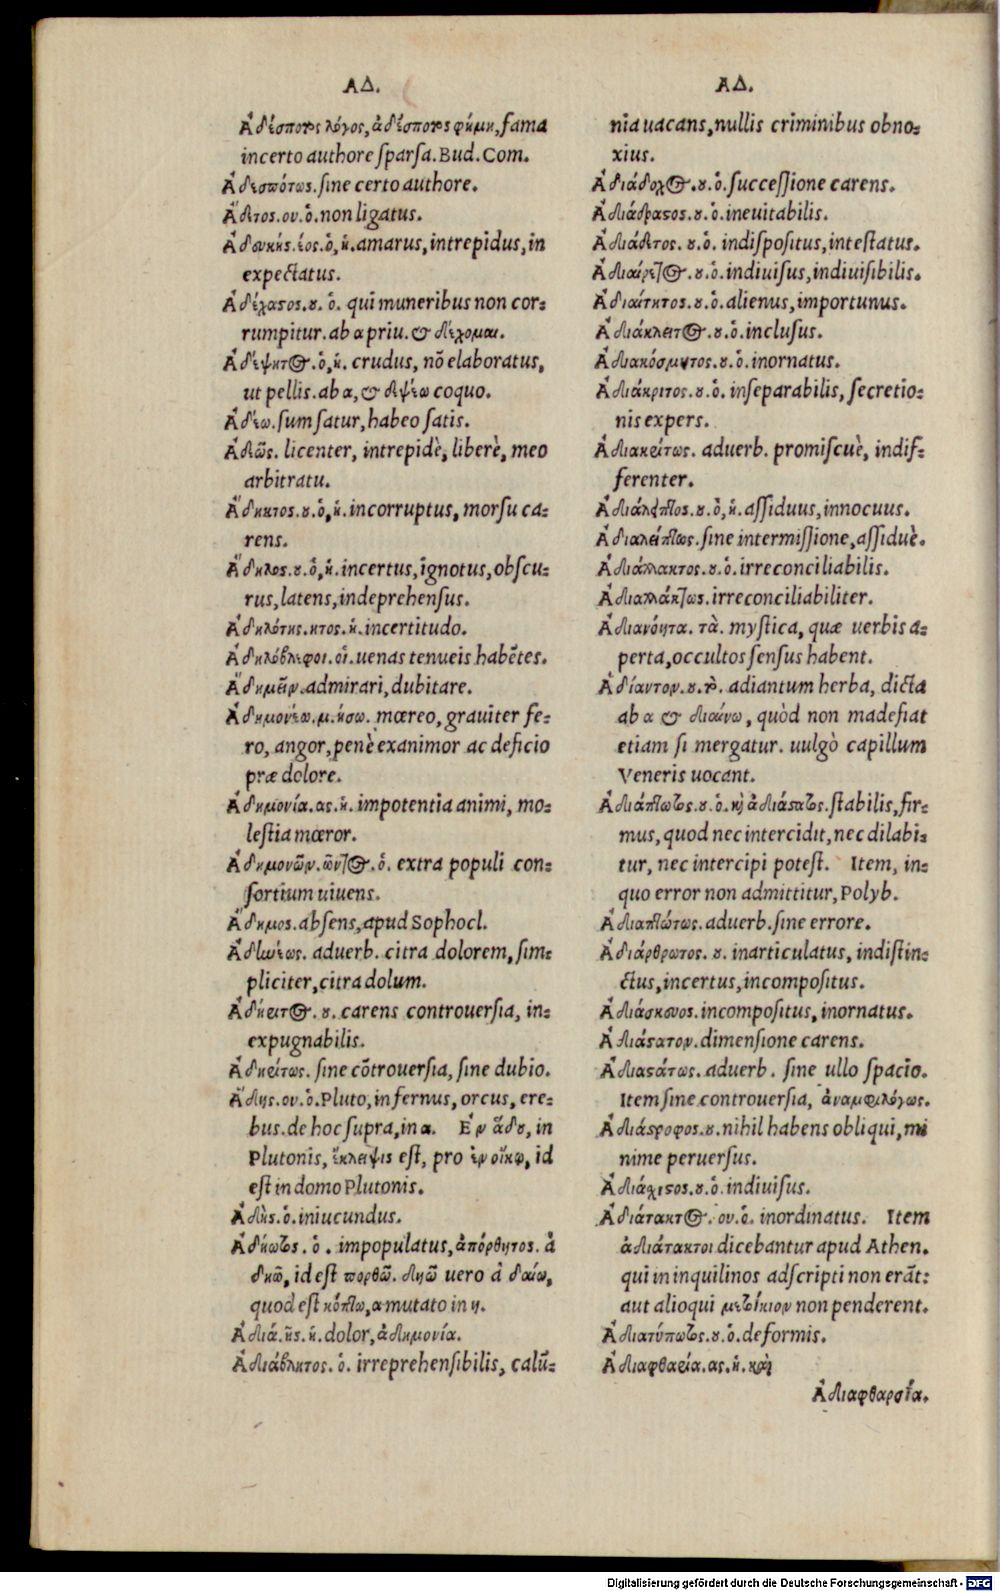 ΑΔ.
Ἀδέσποτος λόγος, ἀδέσποτος φήμη, fama
incerto authore sparsa. Bud. Com.
Ἀδεσπότως. sine certo authore.
Ἄδετος. ου. ὁ. non ligatus.
Ἀδευκής. έος. ὁ, ἡ. amarus, intrepidus, in
expectatus.
Ἀδέχαστος. ȣ. ὁ. qui muneribus non cor-
rumpitur. ab α priu. & δέχομαι.
Ἀδέψητος. ὁ, ἡ. crudus, nõ elaboratus,
ut pellis. ab α, & δεψέω coquo.
Ἀδέω. sum satur, habeo satis.
Ἀδεῶς. licenter, intrepidè, liberè, meo
arbitratu.
Ἄδηκτος. ȣ. ὁ, ἡ. incorruptus, morsu ca-
rens.
Ἄδηλος. ȣ. ὁ, ἡ. incertus, ignotus, obscu-
rus, latens, indeprehensus.
Ἀδηλότης. ητος. ἡ. incertitudo.
Ἀδηλόφλεβοι. οἱ. uenas tenueis habẽtes.
Ἀδημεῖν. admirari, dubitare.
Ἀδημονέω. μ. ήσω. mœreo, grauiter fe-
ro, angor, penè exanimor ac deficio
præ dolore.
Ἀδημονία. ας. ἡ. impotentia animi, mo-
lestia mœror.
Ἀδημονῶν. ῶντος. ὁ. extra populi con-
sortium uiuens.
Ἄδημος. absens, apud Sophocl.
Ἀδηνέως. aduerb. citra dolorem, sim-
pliciter, citra dolum.
Ἀδήριτος. ȣ. carens controuersia, in-
expugnabilis.
Ἀδηρίτως. sine cõtrouersia, sine dubio.
Ἅδης. ου. ὁ. Pluto, infernus, orcus, ere-
bus. de hoc supra, in α. Ἐν ᾅδου, in
Plutonis, ἔκλειψις est, pro ἐν οἴκῳ, id
est in domo Plutonis.
Ἀδής. ὁ. iniucundus.
Ἀδήωτος. ὁ. impopulatus, ἀπόρθητος. ἀ
δηῶ, id est πορθῶ. δηῶ uero ἀ δαίω,
quod est κόπτω, α mutato in η.
Ἀδία. ης. ἡ. dolor, ἀδημονία.
Ἀδιάβλητος. ὁ. irreprehensibilis, calũ-
ΑΔ.
nia uacans, nullis criminibus obno-
xius.
Ἀδιάδοχος. ȣ. ὁ. successione carens.
Ἀδιάδραστος. ȣ. ὁ. ineuitabilis.
Ἀδιάθετος. ȣ. ὁ. indispositus, intestatus.
Ἀδιαίρετος. ȣ. ὁ. indiuisus, indiuisibilis.
Ἀδιαίτητος. ȣ. ὁ. alienus, importunus.
Ἀδιάκλειτος. ȣ. ὁ. inclusus.
Ἀδιακόσμητος. ȣ. ὁ. inornatus.
Ἀδιάκριτος. ȣ. ὁ. inseparabilis, secretio-
nis expers.
Ἀδιακρίτως. aduerb. promiscuè, indif-
ferenter.
Ἀδιάλειπτος. ȣ. ὁ, ἡ. assiduus, innocuus.
Ἀδιαλείπτως. sine intermissione, assiduè.
Ἀδιάλλακτος. ȣ. ὁ. irreconciliabilis.
Ἀδιαλλάκτως. irreconciliabiliter.
Ἀδιανόητα. τὰ. mystica, quæ uerbis a-
perta, occultos sensus habent.
Ἀδίαντον. ȣ. τὸ. adiantum herba, dicta
ab α & διαίνω, quòd non madefiat
etiam si mergatur. uulgò capillum
Veneris uocant.
Ἀδιάπτωτος. ȣ. ὁ. καὶ ἀδιάστατος. stabilis, fir-
mus, quod nec intercidit, nec dilabi-
tur, nec intercipi potest. Item, in-
quo error non admittitur, Polyb.
Ἀδιαπτώτως. aduerb. sine errore.
Ἀδιάρθρωτος. ȣ. inarticulatus, indistin-
ctus, incertus, incompositus.
Ἀδιάσκευος. incompositus, inornatus.
Ἀδιάστατον. dimensione carens.
Ἀδιαστάτως. aduerb. sine ullo spacio.
Item sine controuersia, ἀναμφιλόγως.
Ἀδιάστροφος. ȣ. nihil habens obliqui, mi
nime peruersus.
Ἀδιάχιστος. ȣ. ὁ. indiuisus.
Ἀδιάτακτος. ου. ὁ. inordinatus. Item
ἀδιάτακτοι dicebantur apud Athen.
qui in inquilinos adscripti non erãt:
aut alioqui μετοίκιον non penderent.
Ἀδιατύπωτος. ȣ. ὁ. deformis.
Ἀδιαφθαρία. ας. ἡ. καὶ
Ἀδιαφθαρσία.
Digitalisierung gefördert durch die Deutsche Forschungsgemeinschaft - DFG